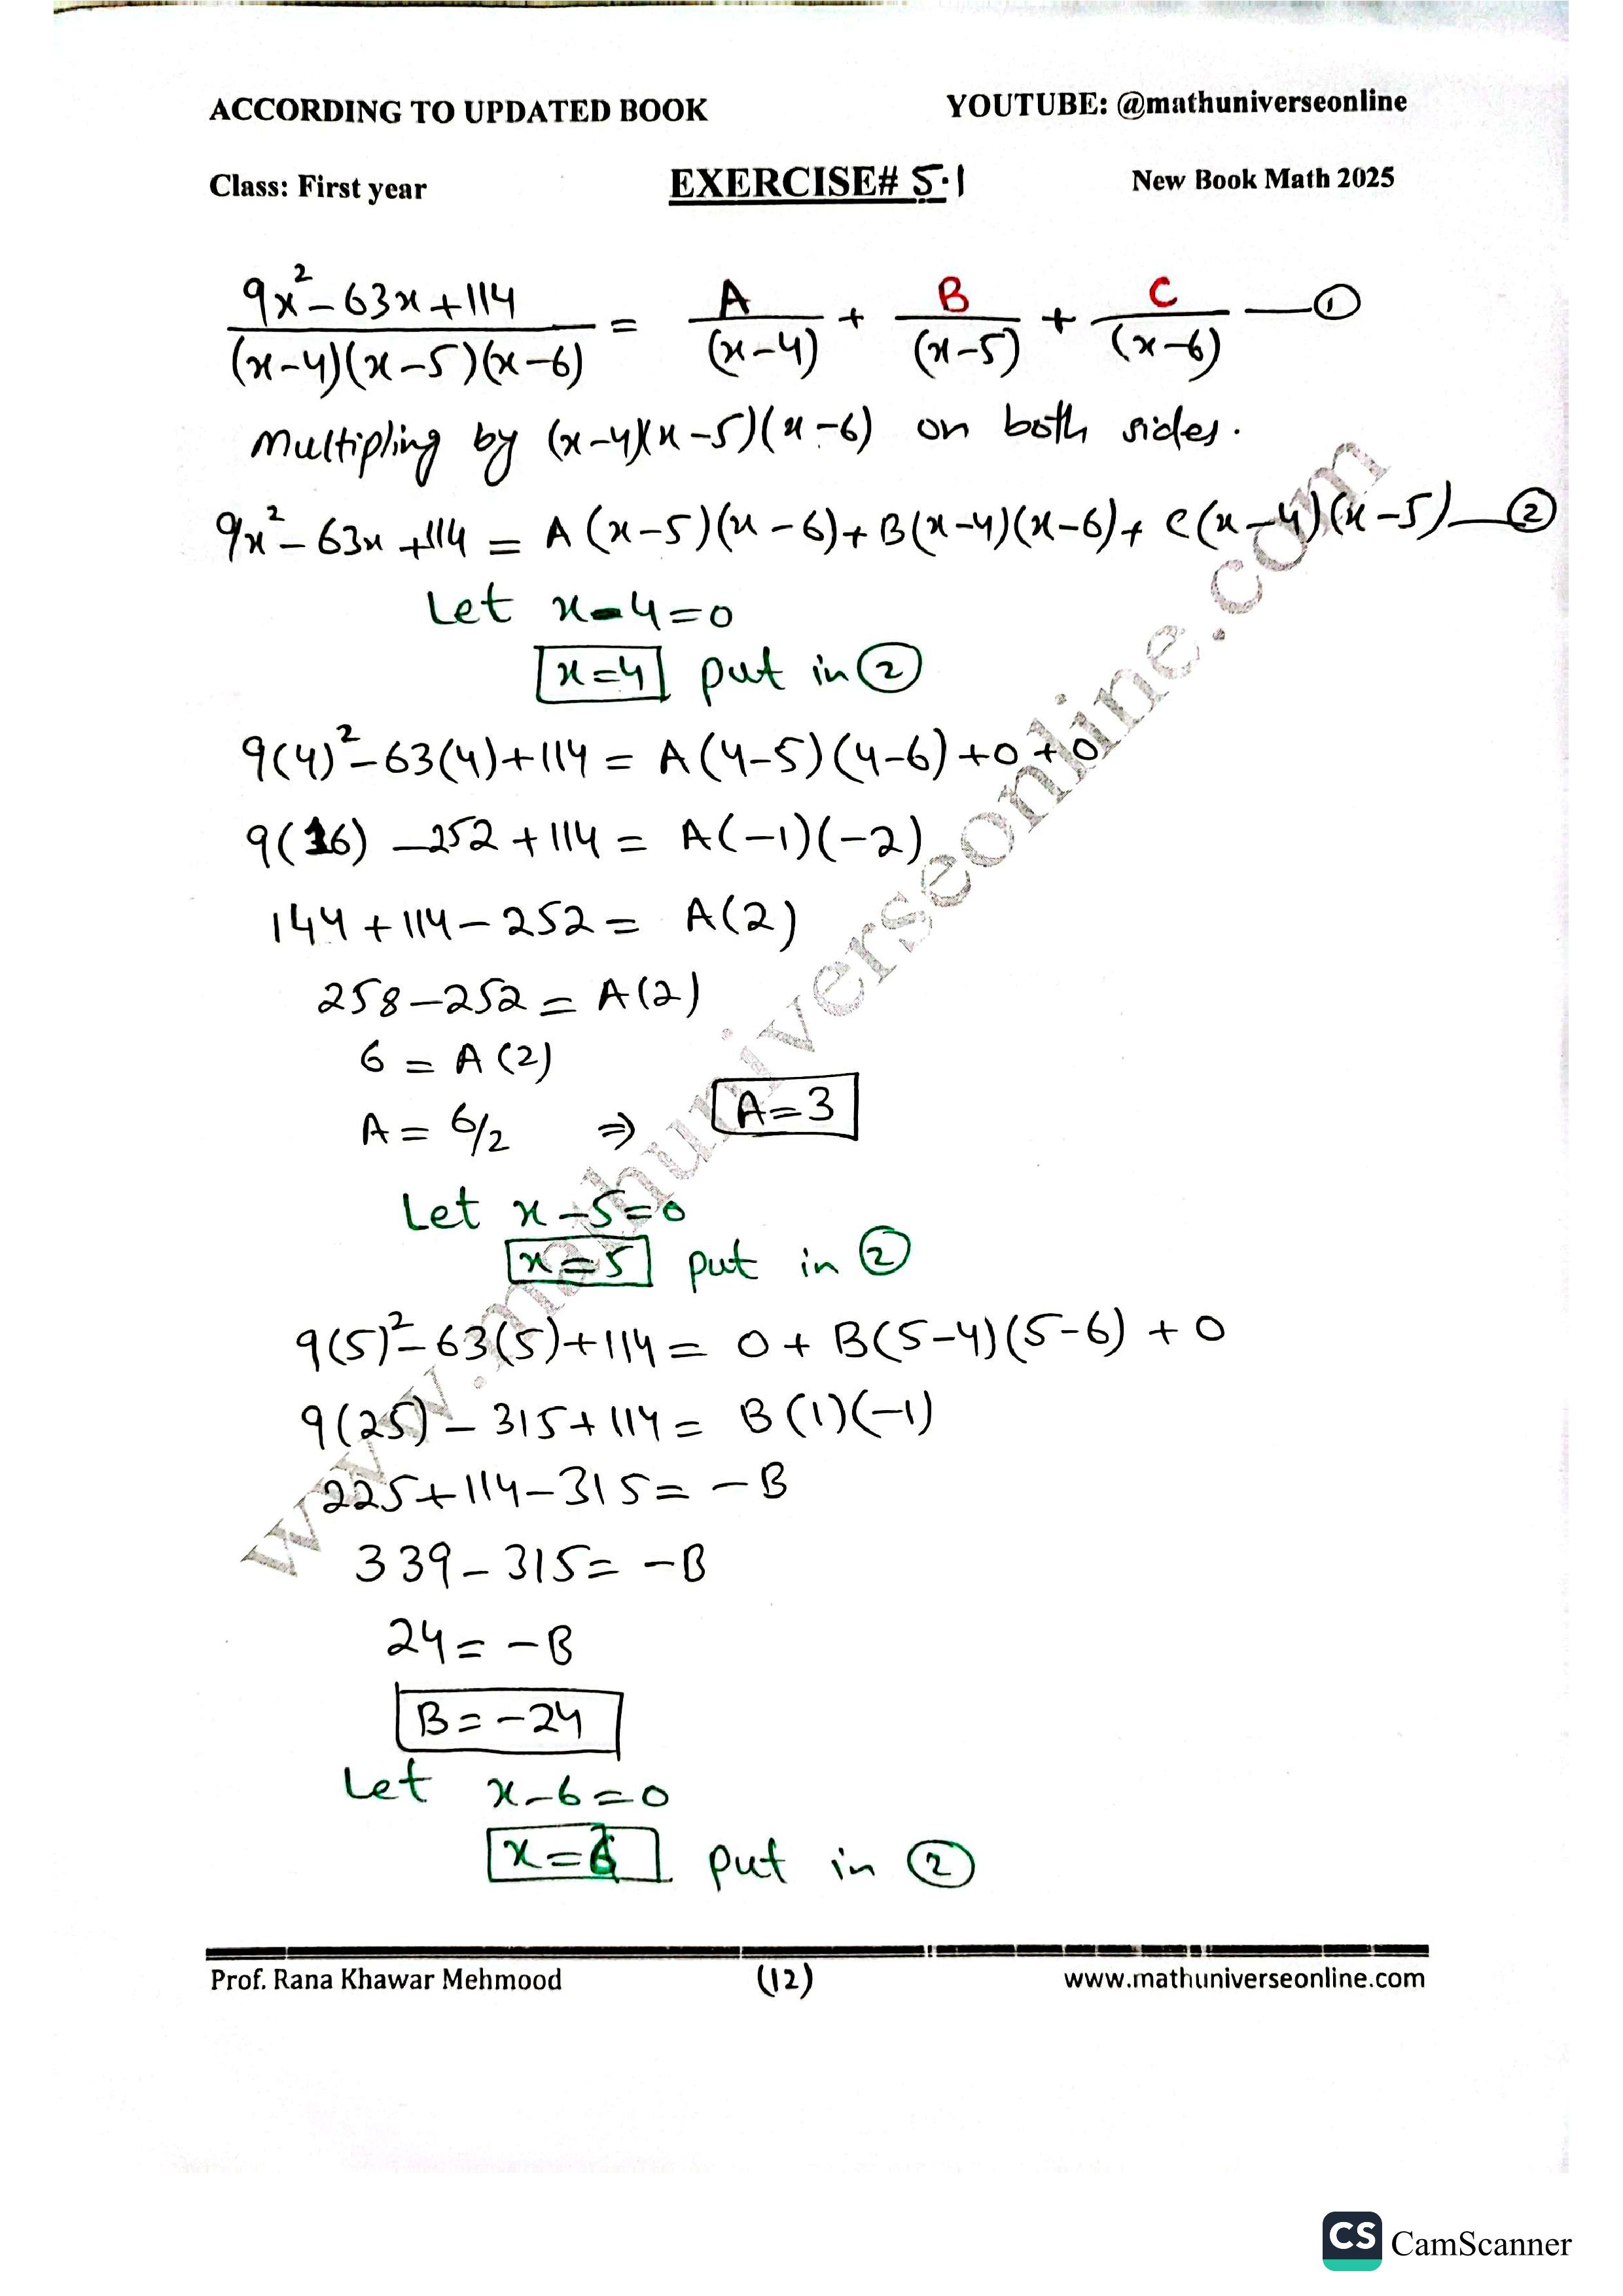 ACCORDING TO UPDATED BOOK YOUTUBE: @mathuniverseonline
Class: First year EXERCISE# 5.1 New Book Math 2025
9x²-63x+114/(x-4)(x-5)(x-6) = A/(x-4) + B/(x-5) + C/(x-6) —①
Multipling by (x-4)(x-5)(x-6) on both sides.
9x²-63x+114 = A(x-5)(x-6)+B(x-4)(x-6)+C(x-4)(x-5)—②
Let x-4=0
x=4 put in ②
9(4)²-63(4)+114 = A(4-5)(4-6)+0+0
9(16)-252+114 = A(-1)(-2)
144+114-252 = A(2)
258-252 = A(2)
6 = A(2)
A = 6/2 ⇒ A=3
Let x-5=0
x=5 put in ②
9(5)²-63(5)+114 = 0+B(5-4)(5-6)+0
9(25)-315+114 = B(1)(-1)
225+114-315 = -B
339-315 = -B
24 = -B
B=-24
Let x-6=0
x=6 put in ②
www.mathuniverseonline.com
Prof. Rana Khawar Mehmood (12) www.mathuniverseonline.com
CS CamScanner